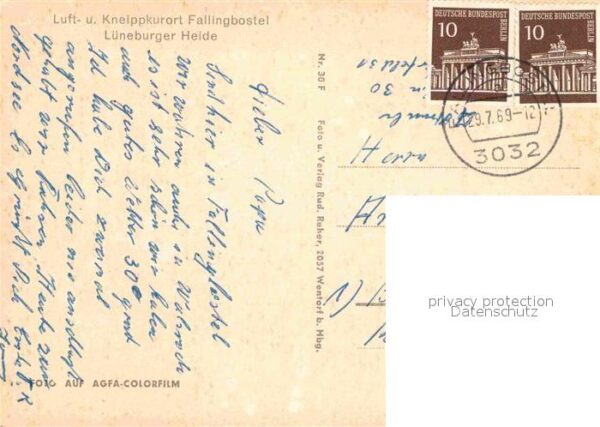 Luft- u. Kneippkurort Fallingbostel
Lüneburger Heide
Lieber Papa
Sind hier in Fallingbostel
Wir waren auch in Walsrode
es ist sehr schön wir haben
auch gutes Wetter 30 grad
Ich habe Dich zweimal
angerufen leider nie anschluß
gehabt wir fahren Heute zur
Nordsee es Grüßt Dich
FOTO AUF AGFA-COLORFILM
Nr. 30 F
Foto u. Verlag Rud. Reher, 2057 Wentorf b. Hbg.
10
DEUTSCHE BUNDESPOST
BERLIN
10
DEUTSCHE BUNDESPOST
BERLIN
29.7.69-12
3032
30
privacy protection
Datenschutz